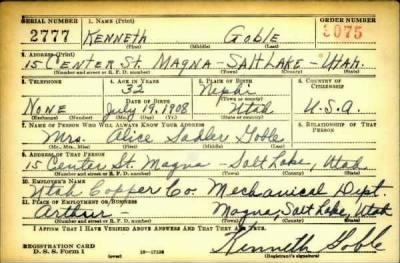 SERIAL NUMBER 1. NAME (Print) ORDER NUMBER
2777 KENNETH GOBLE 3075
(First) (Middle) (Last)
2. ADDRESS (Print)
15 CENTER ST. MAGNA - SALT LAKE - UTAH.
(Number and street or R. F. D. number) (Town) (County) (State)
3. TELEPHONE 4. AGE IN YEARS 5. PLACE OF BIRTH 6. COUNTRY OF CITIZENSHIP
32 Nephi
DATE OF BIRTH (Town or county)
NONE July 19, 1908 Utah U.S.A.
7. NAME OF PERSON WHO WILL ALWAYS KNOW YOUR ADDRESS 8. RELATIONSHIP OF THAT PERSON
Mrs. Alice Sadler Goble
(Mr., Mrs., Miss) (First) (Middle) (Last)
9. ADDRESS OF THAT PERSON
15 Center St. Magna - Salt Lake, Utah
(Number and street or R. F. D. number) (Town) (County) (State)
10. EMPLOYER'S NAME
Utah Copper Co. Mechanical Dept
11. PLACE OF EMPLOYMENT OR BUSINESS
Arthur - Magna, Salt Lake, Utah
(Number and street or R. F. D. number) (Town) (County) (State)
I AFFIRM THAT I HAVE VERIFIED ABOVE ANSWERS AND THAT THEY ARE TRUE.
REGISTRATION CARD
D. S. S. Form 1 (over) Kenneth Goble
(Registrant's signature)